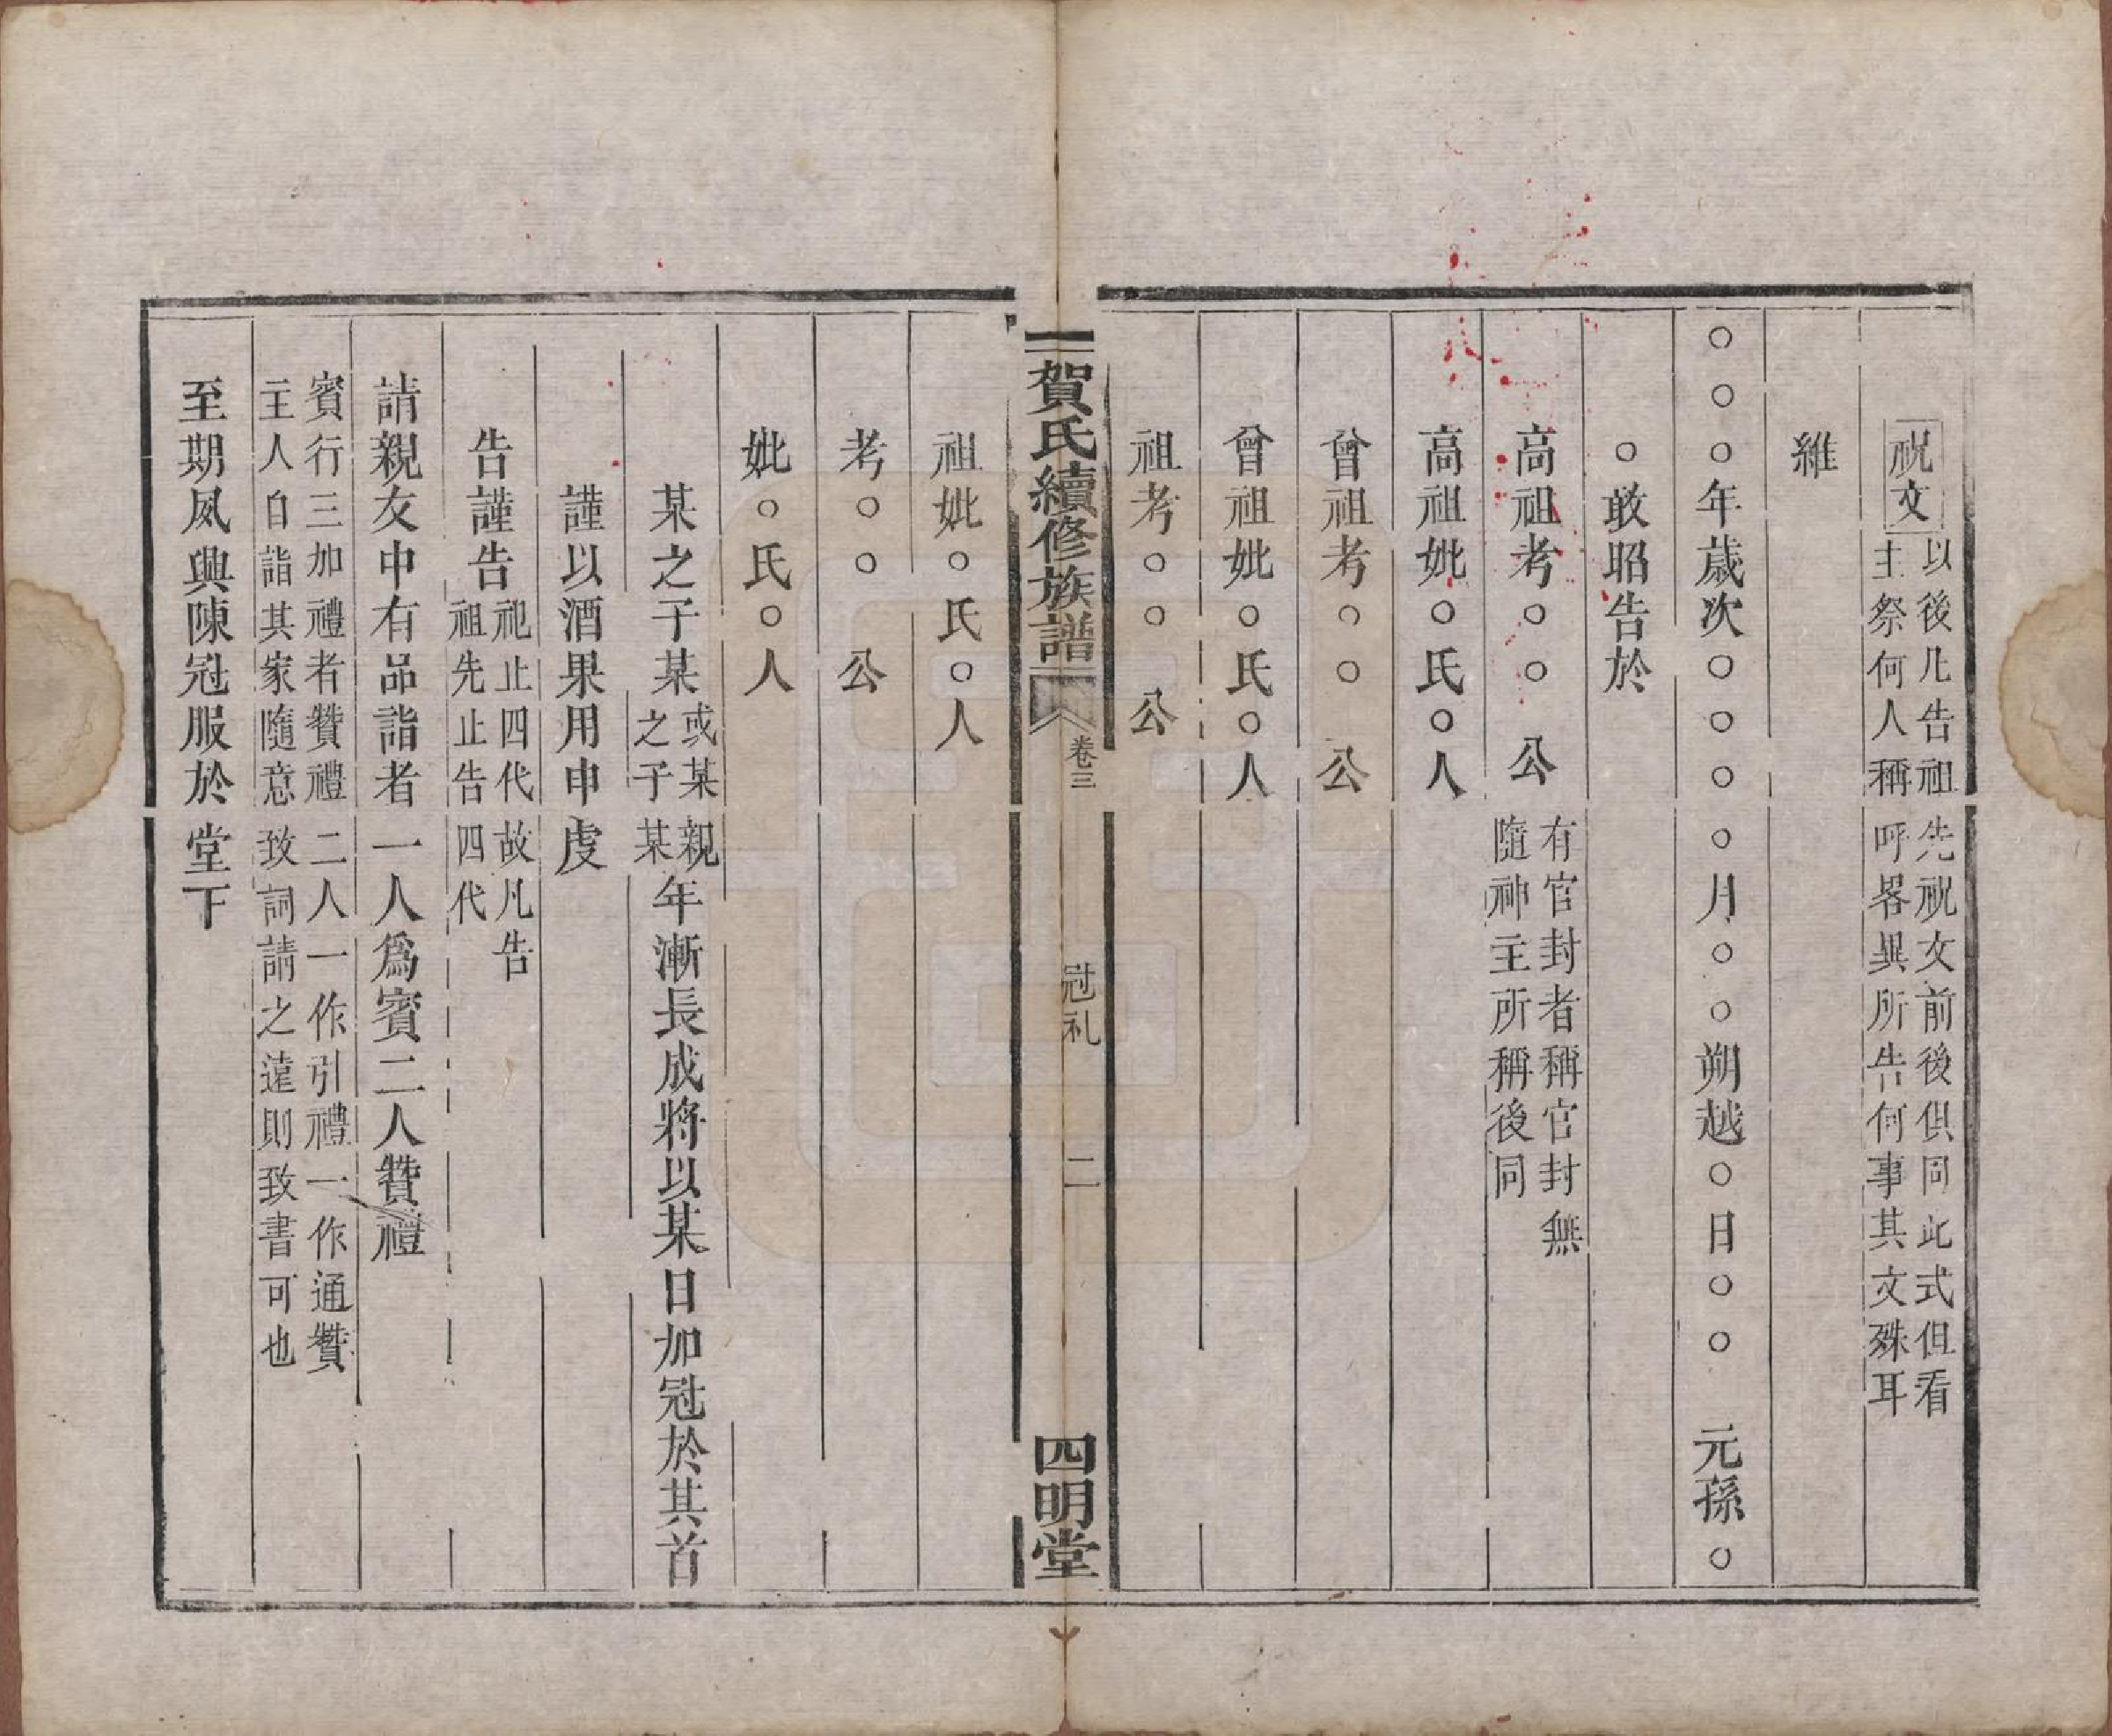 祝文以後凡告祖先祝文前後俱同此式但看
主祭何人稱呼畧異所告何事其文殊耳
維
○○○年歲次○○○○月○○朔越○日○○元孫○
○敢昭告於
高祖考○○公有官封者稱官封無
隨神主所稱後同
高祖妣○氏○人
曾祖考○○公
曾祖妣○氏○人
祖考○○公
賀氏續修族譜 卷三 冠礼 二 四明堂
祖妣○氏○人
考○○公
妣○氏○人
某之子某或某親
之子某年漸長成將以某日加冠於其首
謹以酒果用申虔
告謹告祀止四代故凡告
祖先止告四代
請親友中有品詣者一人爲賓二人贊禮
賓行三加禮者贊禮二人一作引禮一作通贊
主人自詣其家隨意致詞請之遠則致書可也
至期夙興陳冠服於堂下